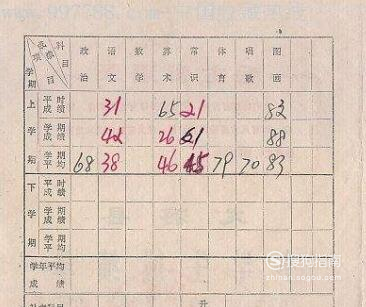 www.997788.com 中国收藏热线
成绩 项目 科目 学期 政治 语文 数学 算术 常识 体育 唱歌 图画
上学期 平时成绩 31 65 21 82
学期成绩 42 26 88
学期平均 68 38 46 79 70 83
下学期 平时成绩
学期成绩
学期平均
学年平均
成绩
升
搜狗指南